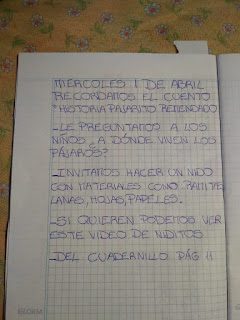 MIERCOLES 1 DE ABRIL
RECORDAMOS EL CUENTO
"HISTORIA PAJARITO REMENDADO
-LE PREGUNTAMOS A LOS
NIÑOS ¿A DÓNDE VIVEN LOS
PÁJAROS?
-INVITAMOS HACER UN NIDO
CON MATERIALES COMO RAMITAS
LANAS, HOJAS, PAPELES.
-SI QUIEREN PODEMOS VER
ESTE VIDEO DE NIDITOS
-DEL CUADERNILLO PÁG 11